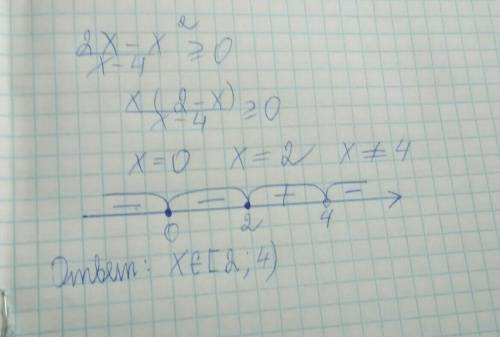 (2x - x²)/(x - 4) ≥ 0
x(2 - x)/(x - 4) ≥ 0
x = 0 x = 2 x ≠ 4
− − + −
0 2 4
Ответ: x∈[2; 4)